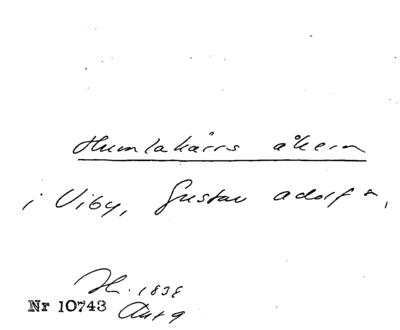 Humlakärrs åkern
i Viby, Gustav adolf s,
H. 1838
Nr 10743
Akt 9